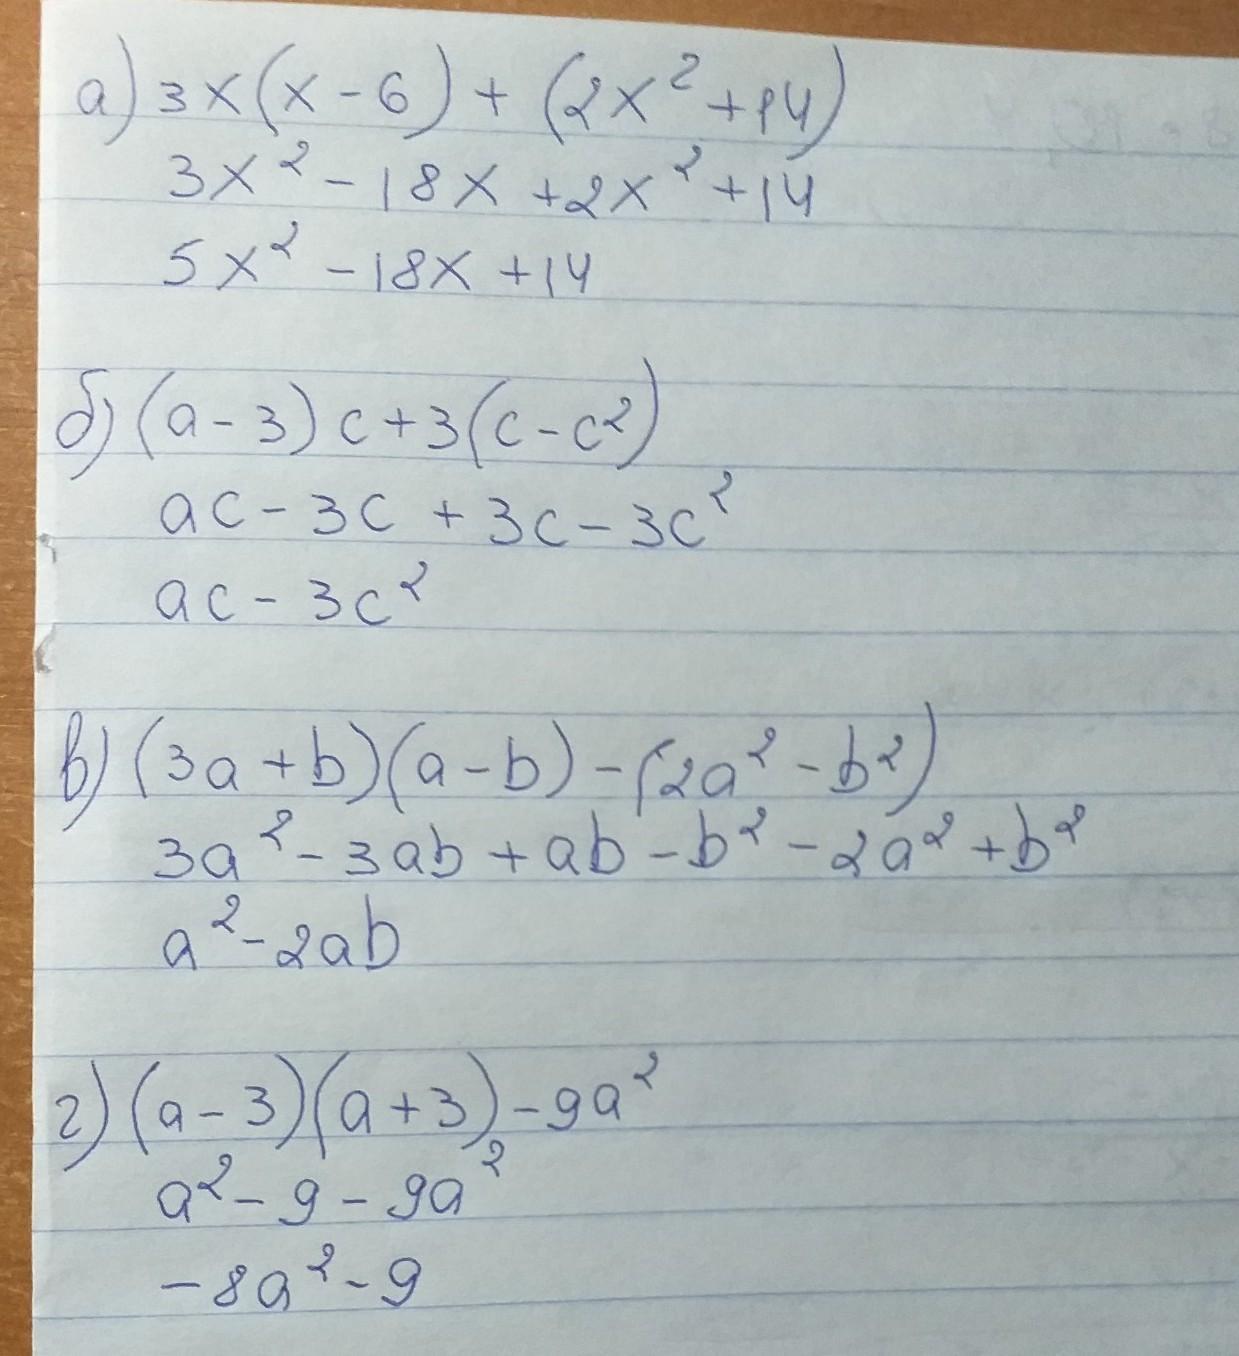 а) 3x(x-6) + (2x² + 14)
3x² - 18x + 2x² + 14
5x² - 18x + 14
б) (a-3) c + 3(c-c²)
ac - 3c + 3c - 3c²
ac - 3c²
в) (3a + b)(a - b) - (2a² - b²)
3a² - 3ab + ab - b² - 2a² + b²
a² - 2ab
г) (a-3)(a+3) - 9a²
a² - 9 - 9a²
-8a² - 9